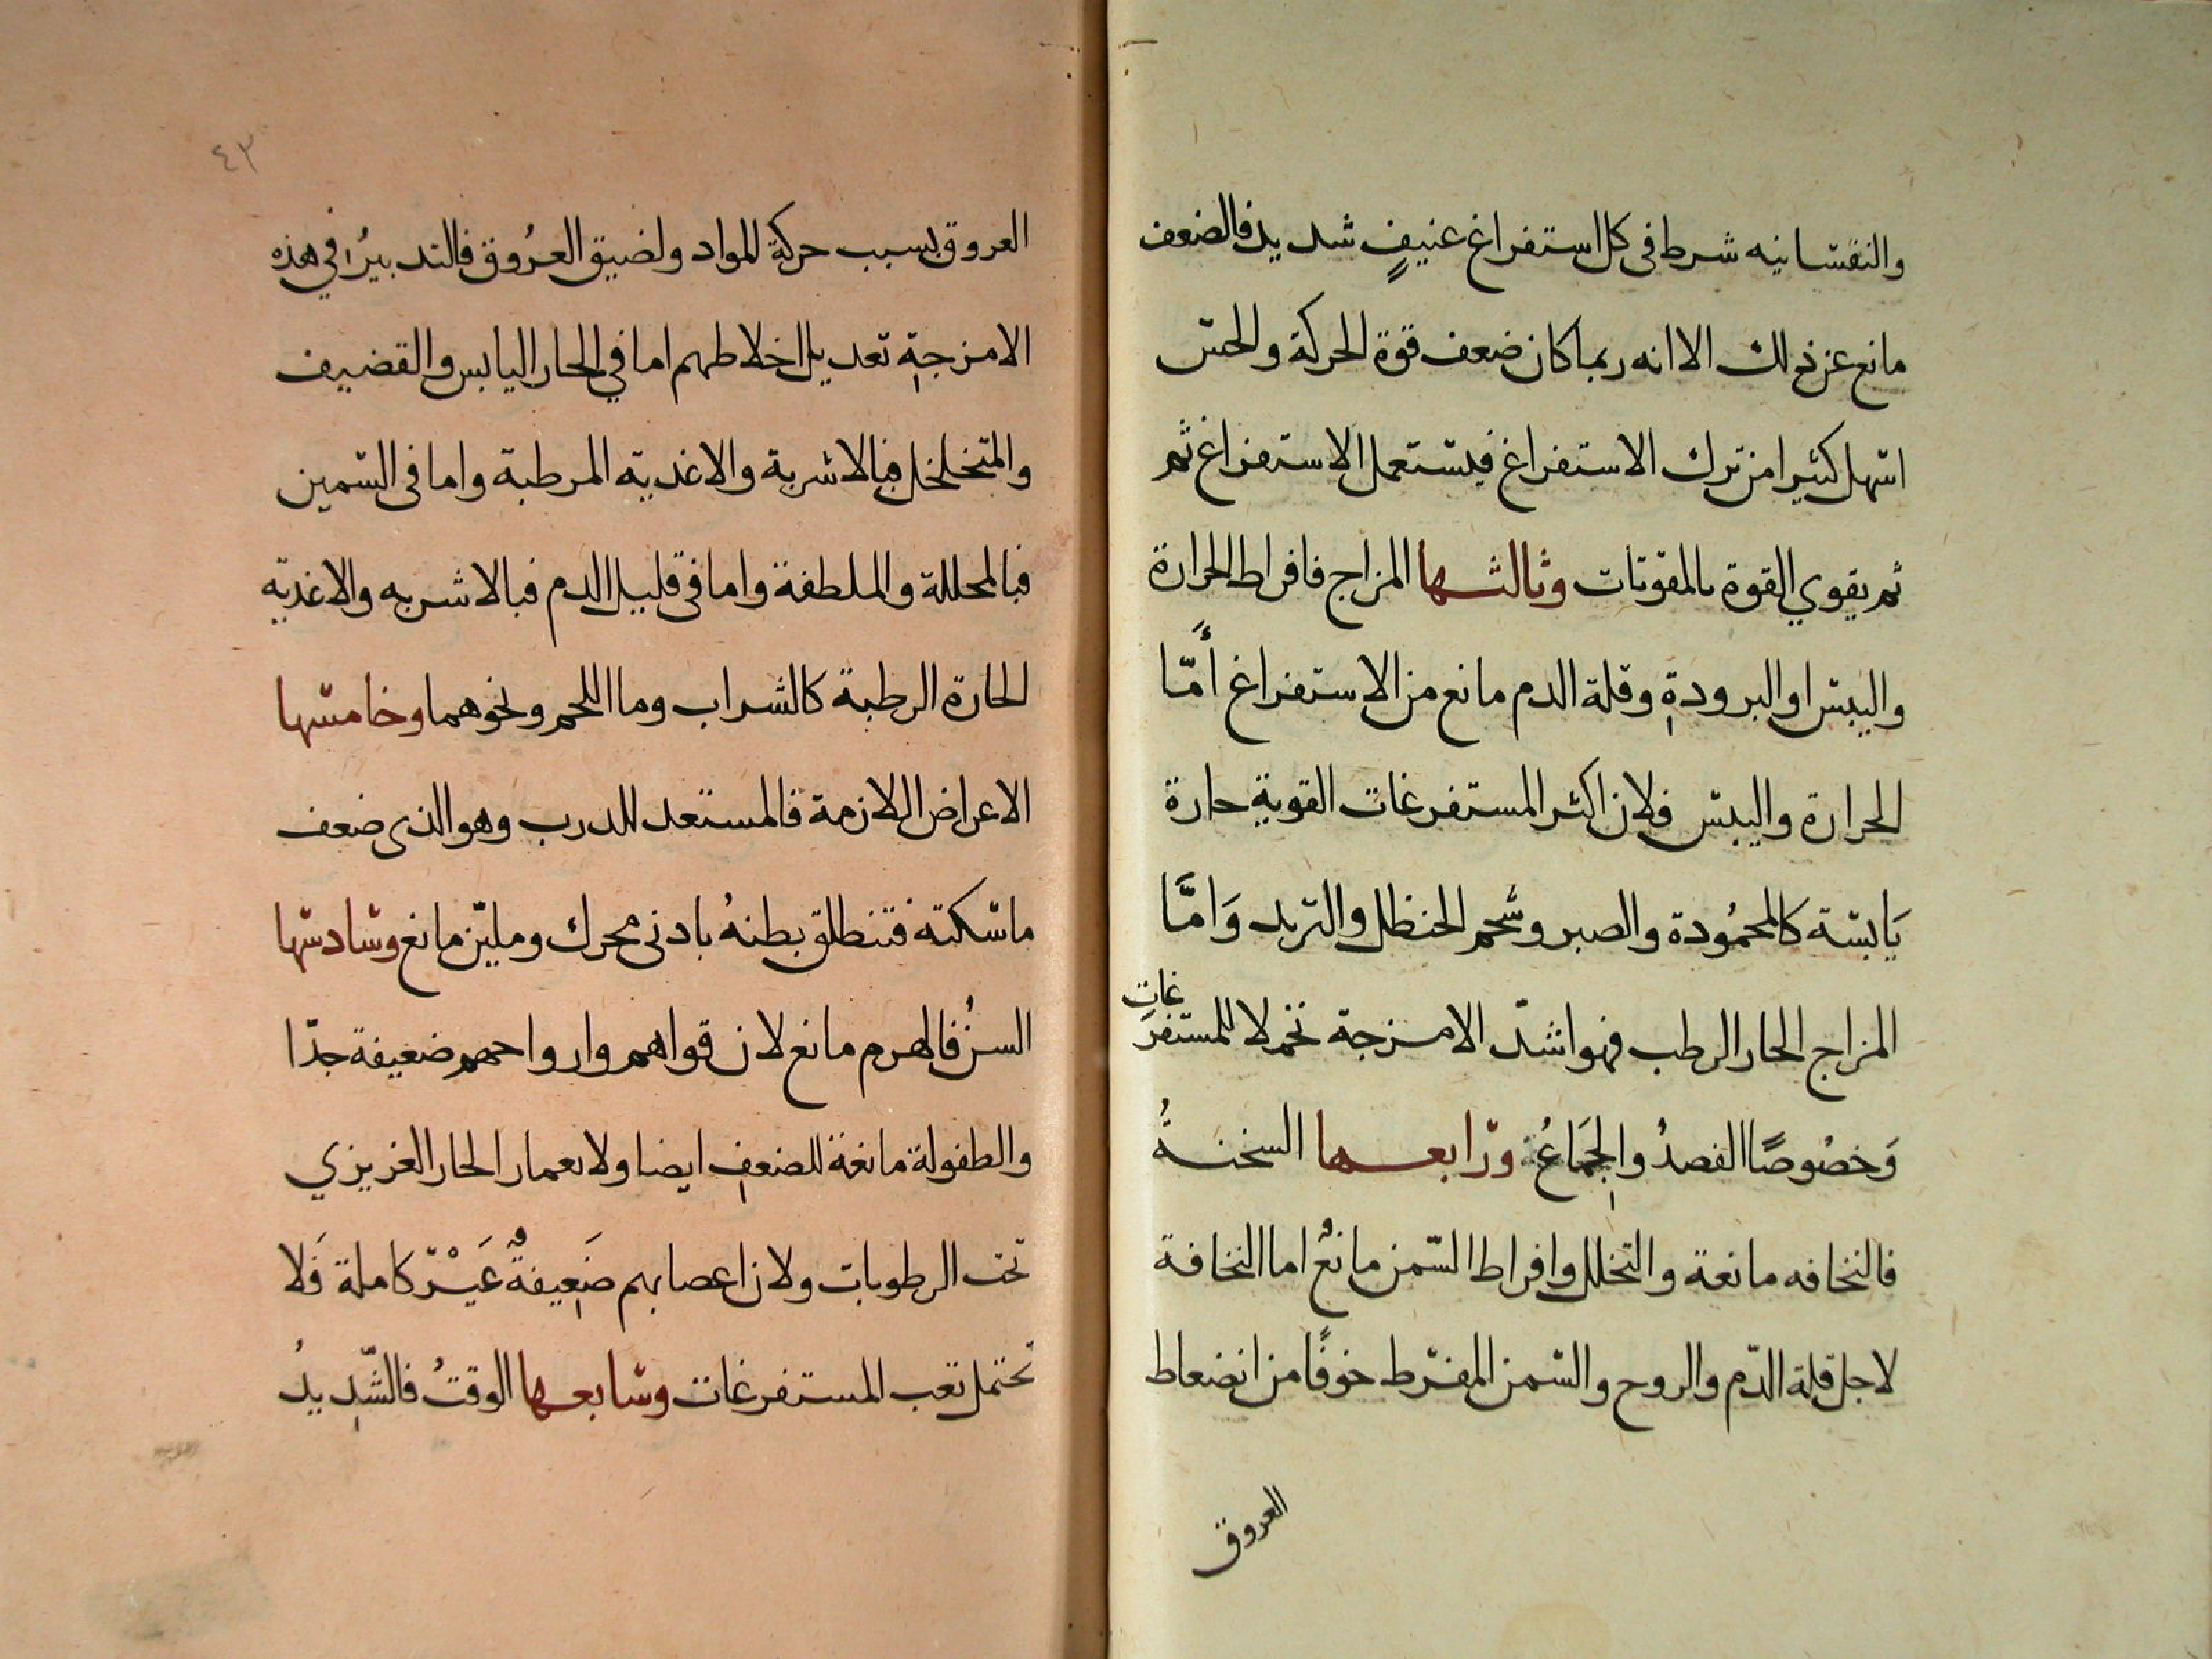 والنفسانيه شرط في كل استفراغ عنيفٍ شديد فالضعف
مانع عن ذلك الا انه ربما كان ضعف قوة الحركة والحس
اسهل كثيرا من ترك الاستفراغ فيستعمل الاستفراغ ثم
ثم يقوي القوة بالمقويات وثالثها المزاج فافراط الحرارة
واليبس او البرودةِ وقلة الدم مانع من الاستفراغ أَمّا
الحرارة واليبس فلان اكثر المستفرغات القوية حارة
يَابسة كالمحمُودة والصبر وشحم الحنظل والتربد وَامَّا
المزاج الحار الرطب فهو اشدّ الامزجة تحملا للمستفرَغات
وَخصُوصًا الفصدُ والجِمَاعُ ورابعها السخنةُ
فالنحافه مانعة والتخلل وافراط السّمن مانعٌ اما النحافة
لاجل قلة الدّم والروح والسّمن المفرّط خوفًا من انضعاط
العروق
٤٣
العروق بسبب حركة المواد ولضيق العرُوق فالتدبيرُ في هذه
الامزجةِ تعديل اخلاطهم اما في الحار اليابس والقضيف
والمتخلخل فبالاشربة والاغذيه المرطبة واما في السّمين
فبالمحللة والملطفة واما في قليل الدم فبالاشربه والاغذيه
الحارة الرطبة كالشراب وما اللحم ونحوهما وخامسها
الاعراض اللازمة فالمستعد للدرب وهو الذي ضعف
ماسكته فتنطلق بطنهُ بادنى محرك وملين مانع وسادسها
السنُ فالهرم مانع لان قواهم وارواحهم ضعيفة جدّا
والطفولة مانعة للضعفِ ايضا ولانعمار الحار الغريزي
تحت الرطوبات ولان اعصابهم ضَعِيفةٌ غَيْر كاملة فَلا
تحتمل تعب المستفرغات وسابعها الوقتُ فالشّدِيدُ